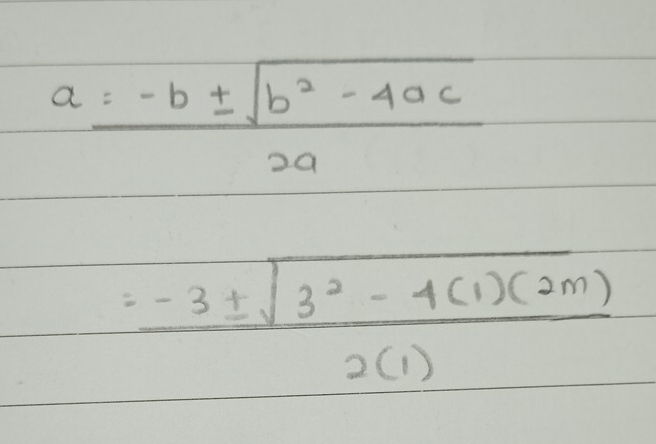 a = -b ± √b² - 4ac
2a
= -3 ± √3² - 4(1)(2m)
2(1)